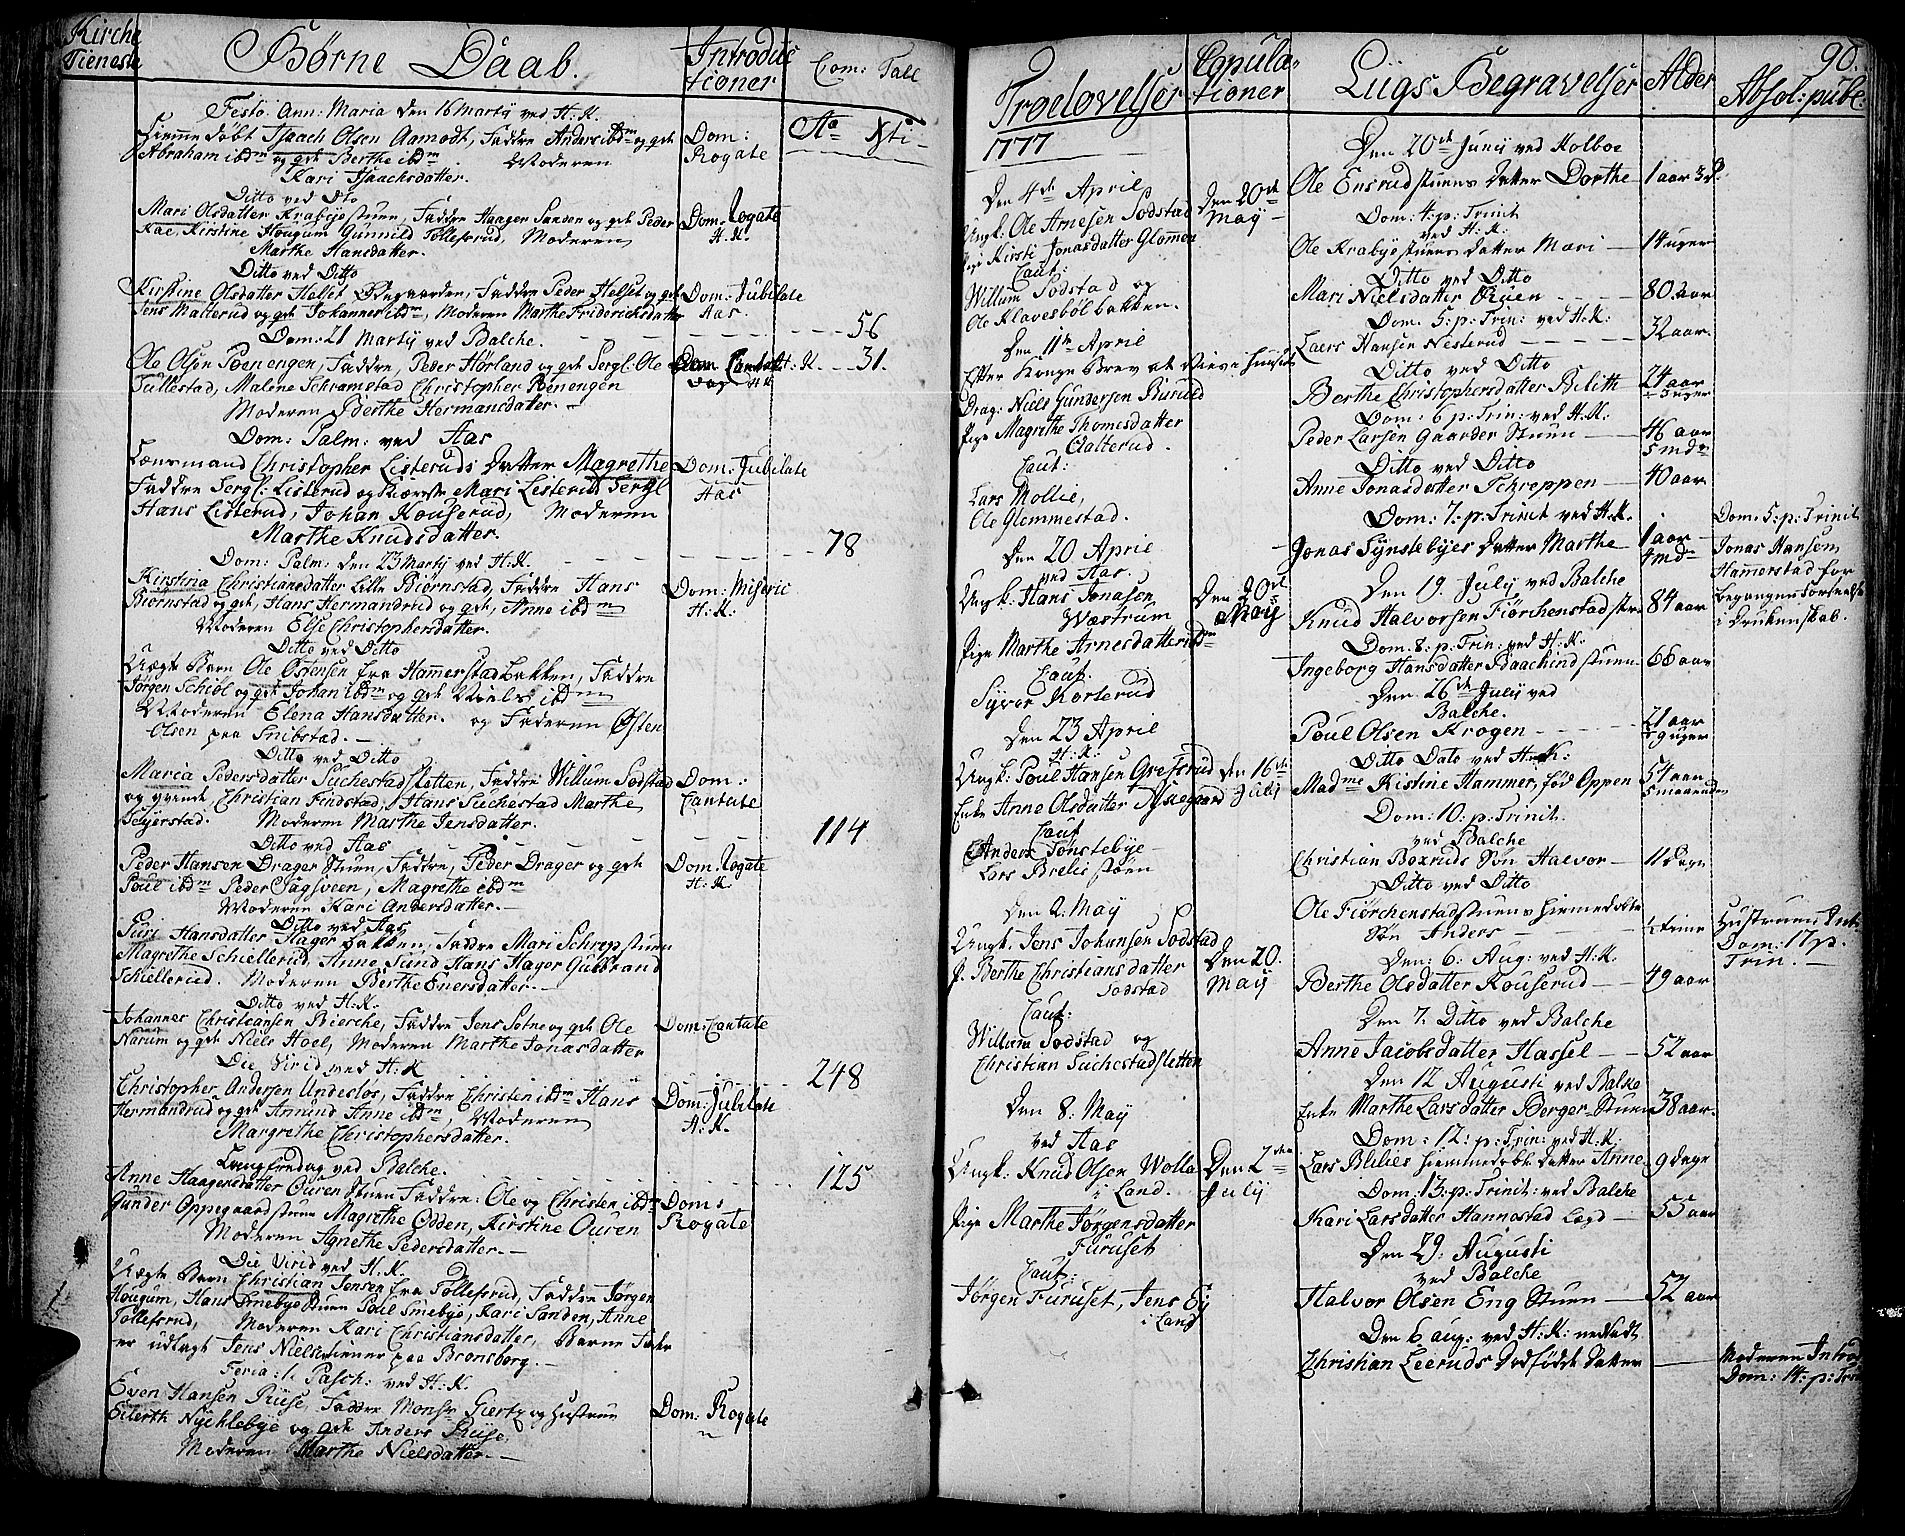 Kirche
Tieneste
Børne Daab.
Introduc
tioner
Com: Tall
Festo. Ann: Maria den 16 Martÿ ved H. K.
Hiemme døbt Isaach Olsen Aamodt, Faddre Anders ibdm og gdt
Abraham ibdm og gdt Berthe ibdm Moderen
Kari Isaachsdatter.
Dom:
Rogate
Ao Xti
Ditto ved Dto
Mari Olsdatter Krabÿe stuen, Faddre Haagen Sanden og gdt Peder
Kae, Kirstine Hougum Gunnild Tollefsrud, Moderen
Marthe Hansdatter.
Dom: Rogate
H. K.
Ditto ved Ditto
Kirstine Olsdatter Helset Øvegaarden, Faddre Peder Helset og gdt
Jens Malterud og gdt Johannes ibdm, Moderen Marthe Fridericksdatter
Dom: Jubilate
Aas.
Dom: 21 Martÿ ved Balche. - - - 56
Ole Olsen Poenengen, Faddre, Peder Hørland og gdt Sergt: Ole
Tullestad, Malene Schramstad Christopher Poenengen
Moderen Berthe Hermansdatter.
Dom Cantat H. K. - - 31.
Dom: Palm: ved Aas
Lænsmand Christopher Listeruds datter Magrethe
Faddre Sergt: Listerud og Kiæreste Mari Listerud Sergt
Hans Listerud, Johan Kouserud, Moderen
Marthe Knudsdatter.
Dom: Jubilate
Aas
78
Dom: Palm: den 23 Martÿ ved H. K.
Kirstina Christiansdatter Lille Biørnstad, Faddre Hans
Biørnstad og gdt, Hans Hermandrud og gdt, Anne ibdm
Moderen Else Christophersdatter.
Dom: Miseric
H. K:
Ditto ved Ditto
Uægte Barn Ole Østensen fra Hammerstad bakken, Faddre
Jørgen Schiøl og gdt Johan ibdm og gdt Niels ibdm
Moderen Elena Hansdatter. og Faderen Østen
Olsen paa Snibstad.
Ditto ved Ditto
Maria Pedersdatter Suchestadsletten, Faddre Willum Sodstad
og gvende Christian Findstad, Hans Suchestad Marthe
Seÿerstad. Moderen Marthe Jensdatter.
Dom:
Cantate
114
Ditto ved Aas
Peder Hansen Drager Stuen, Faddre, Peder Drager og gdt
Poul ibdm Peder Sagsveen, Magrethe ibdm
Moderen Kari Andersdatter.
Dom. Rogate
H: K.
Ditto ved Aas
Siri Hansdatter Hager bakken, Faddre Mari Schrepstuen
Magrethe Schiellerud, Anne Sund Hans Hager Gulbrand
Schiellerud. Moderen Berthe Enersdatter.
Ditto ved H: K.
Johannes Christiansen Bierche, Faddre Jens Sotne og gdt Ole
Narum og gdt Niels Hoel, Moderen Marthe Jonasdatter
Dom: Cantate
Die Virid ved H: K
248
Christopher Andersen Undeslos, Faddre Christen ibdm Hans
Hermandrud og gdt Amund Anne ibdm Moderen
Margrethe Christophersdatter.
Dom: Jubilate
H. K.
Langfredag ved Balche.
125
Anne Haagensdatter Ouren Stuen Faddre: Ole og Christen ibdm
Gunder Oppegaardstuen Magrethe Odden, Kirstine Ouren
Moderen Agnethe Pedersdatter.
Dom:
Rogate
Die Virid ved H. K.
Uægte Barn Christian Jensen fra Tollefsrud, Faddre Jørgen
Hougum, Hans Smebye Stuen Poul Smebÿe, Kari Sanden, Anne
Tollefsrud, Moderen Kari Christiansdatter, Barne Fader
er udlagt Jens Nielsen tiener paa Bronsberg.
Feria: 1. Pasch: ved H: K.
Even Hansen Riise, Faddre Monsr Giertz og Hustrue
Eilerth Nÿchlebÿe og gdt Anders Riise
Moderen Marthe Nielsdatter.
Dom: Rogate
Troelovelser
Copula-
tioner
Liigs Begravelser
Alder
Absol: publ:
90.
1777
Den 4de April
Ungk: Ole Arnesen Sodstad
Pige Kirsti Jonasdatter Glommen
Caut:
Willum Sodstad og
Ole Klavesbøl bakken.
Den 20de
May
Den 11te April
Efter Konge Brev at vies i Huuset
Drag: Niels Gundersen Burull
Pige Magrethe Thomesdatter
Dalterud
Caut:
Lars Mollie,
Ole Glemmestad.
Den 20 April
ved Aas.
Ungk: Hans Jonasen
Wæstrum
Pige Marthe Arnesdatter ibdm
Caut:
Syver Korterud
Den 20de
Maÿ
Den 23 April
H: K:
Ungk: Poul Hansen Grefsrud
Enke Anne Olsdatter Askegaard
Caut
Anders Tonstebÿe
Lars Brelie støen
Den 16de
Julÿ
Den 2. Maÿ
Ungk. Jens Johansen Sodstad
P. Berthe Christiansdatter
Sodstad
Caut:
Willum Sodstad og
Christian Suchestadsletten
Den 20.
Maÿ
Den 8. Maÿ
ved Aas
Ungk: Knud Olsen Wolla
i Land.
Pige Marthe Jørgensdatter
Furuset
Caut:
Jørgen Furuset, Jens Eÿ
i Land
Den 2den
Julÿ
Den 20de Junÿ ved Kolboe
Ole Ensrudstuens datter Dorthe 1 aar 3 d.
Dom: 4: p: Trinit
ved H: K:
Ole Krabÿe stuens datter Mari 14 uger
Ditto ved Ditto
Mari Nielsdatter Øruen 80 aar
Dom: 5: p: Trin: ved H: K:
Laers Hansen Nesterud 32 aar.
Ditto ved Ditto
Berthe Christophersdatter Bilith 24 aar
3 uger
Dom: 6 p: Trin: ved H: K:
Peder Larsen Gaarder Stuen 46 aar
5 mdr
Ditto ved Ditto
Anne Jonasdatter Schreppen 40 aar
Dom: 7: p: Trinit ved H: K.
Jonas Sÿnstebÿes datter Marthe 1 aar
4 mdr
Dom: 5: p: Trinit
Jonas Hansen
Hammerstad for
begangne Forseelse
i Drukenskab.
Den 19. Julÿ ved Balche
Knud Halvorsen Fiørchenstad stuen 84 aar
Dom: 8: p: Trin: ved H: K:
Ingeborg Hansdatter Paachind stuen 66 aar
Den 26de Julÿ ved
Balche.
Poul Olsen Krogen 21 aar
9 uger
Ditto Dato ved H: K:
Madme Kistine Hammer, fød Oppen 54 aar
5 maaneder
Dom: 10: p: Trinit.
ved Balche
Christian Boxruds Søn Halvor 11 dage
Ditto ved Ditto
Ole Fiørchenstadstuens hiemmedøbte
Søn Anders 1 time
Hustruens Int:
Dom: 17 p.
Trin.
Den: 6: Aug: ved H: K.
Berthe Olsdatter Kouserud 49 aar
Den 7. Ditto ved Balche
Anne Jacobsdatter Hassel 52 aar
Den 12 Augusti ved Balke
Enke Marthe Larsdatter Berger Stuen 38 aar.
Dom: 12: p: Trin: ved H: K:
Lars Blilies hiemmedøbt datter Anne 9 dage
Dom: 13: p: Trinit: ved Balche
Kari Larsdatter Hannestad Lægd 55 aar
Den 29. Augusti
ved Balche
Halvor Olsen Eng Stuen 52 aar
Den 6 aug: ved H: K: nedsadt
Christian Leeruds Dødfødde datter
Moderen Introd
Dom: 14: p: Trin